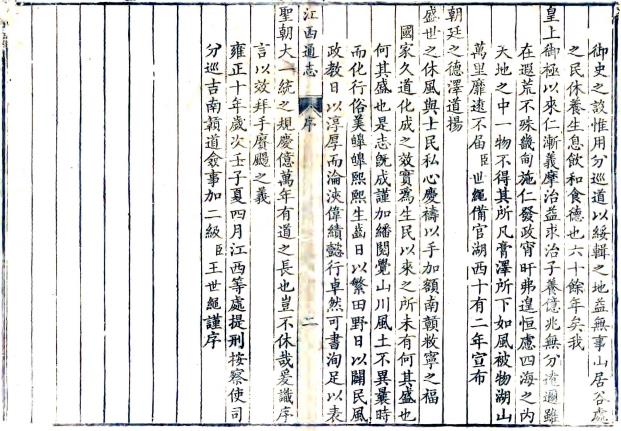 御史之設惟用分巡道以綏輯之地益無事山居谷處
之民休養生息飲和食德也六十餘年矣我
皇上御極以來仁漸義摩治益求治子養億兆無分遐邇雖
在遐荒不殊畿甸施仁發政宵旰弗遑恒慮四海之內
天地之中一物不得其所凡膏澤所下如風被物湖山
萬里靡遠不届臣世繩備官湖西十有二年宣布
朝廷之德澤道揚
盛世之休風與士民私心慶禱以手加額南贛敉寧之福
國家久道化成之效實爲生民以來之所未有何其盛也
何其盛也是志旣成謹加繙閱覺山川風土不異曩時
而化行俗美皥皥熙熙生齒日以繁田野日以闢民風
政教日以淳厚而淪浹偉績懿行卓然可書洵足以表
江西通志
序
二
聖朝大一統之規慶億萬年有道之長也豈不休哉爰識序
言以效拜手賡颺之義
雍正十年歲次壬子夏四月江西等處提刑按察使司
分巡吉南贛道僉事加二級臣王世繩謹序